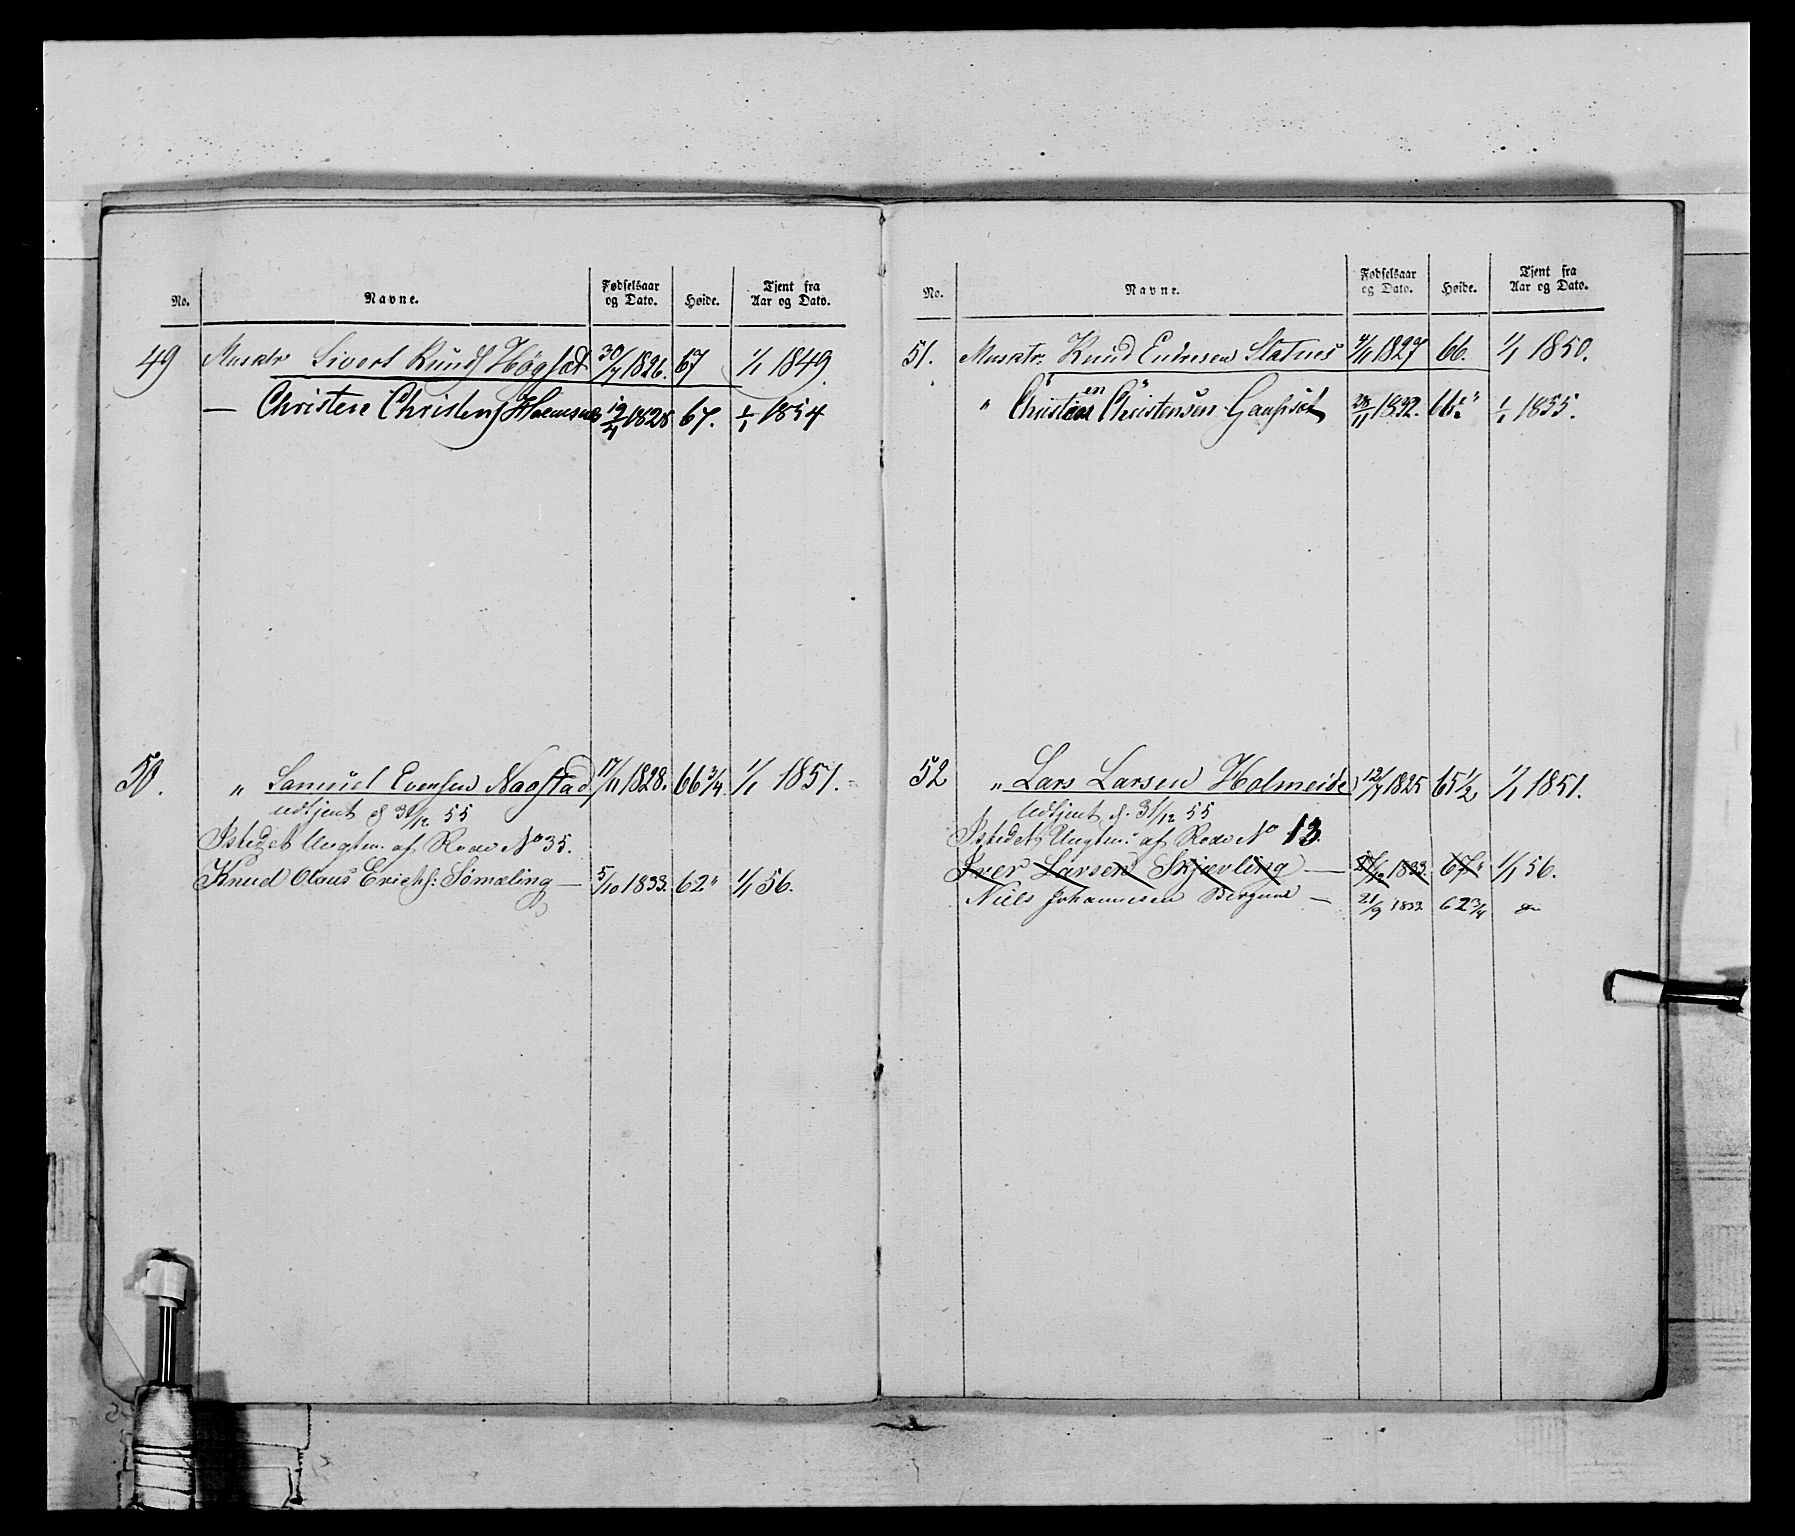 No. Navne. Fødselsaar og Dato. Høide. Tjent fra Aar og Dato.
49 Musktr Sivert Knuds Høgset 30/7 1826. 67 1/1 1849.
— Christen Christens 12/4 1828 67. 1/1 1854
50. " Samuel Evensen Naostad 17/11 1828. 66 3/4 1/1 1851.
udtjent d 31/12 55
Istedet Ungtm. af Rode No 35.
Knud Olaus Erichs: Sømæling — 5/10 1833. 62" 1/1 56.
No. Navne. Fødselsaar og Dato. Høide. Tjent fra Aar og Dato.
51. Musktr. Knud Endresen Statnes 4/11 1827 66. 1/1 1850.
" Christen Christensen Gaupset 28/11 1832. 66" 1/1 1855.
52 " Lars Larsen Holmeide 12/7 1825 65 1/2 1/1 1851.
Udtjent d. 31/12 55
Istedet Ungtm. af Rode No 13.
Iver Larsen Skjevling — 1833. 67" 1/1 56.
Niels Johannesen Bergund — 21/9 1833 62 3/4 do